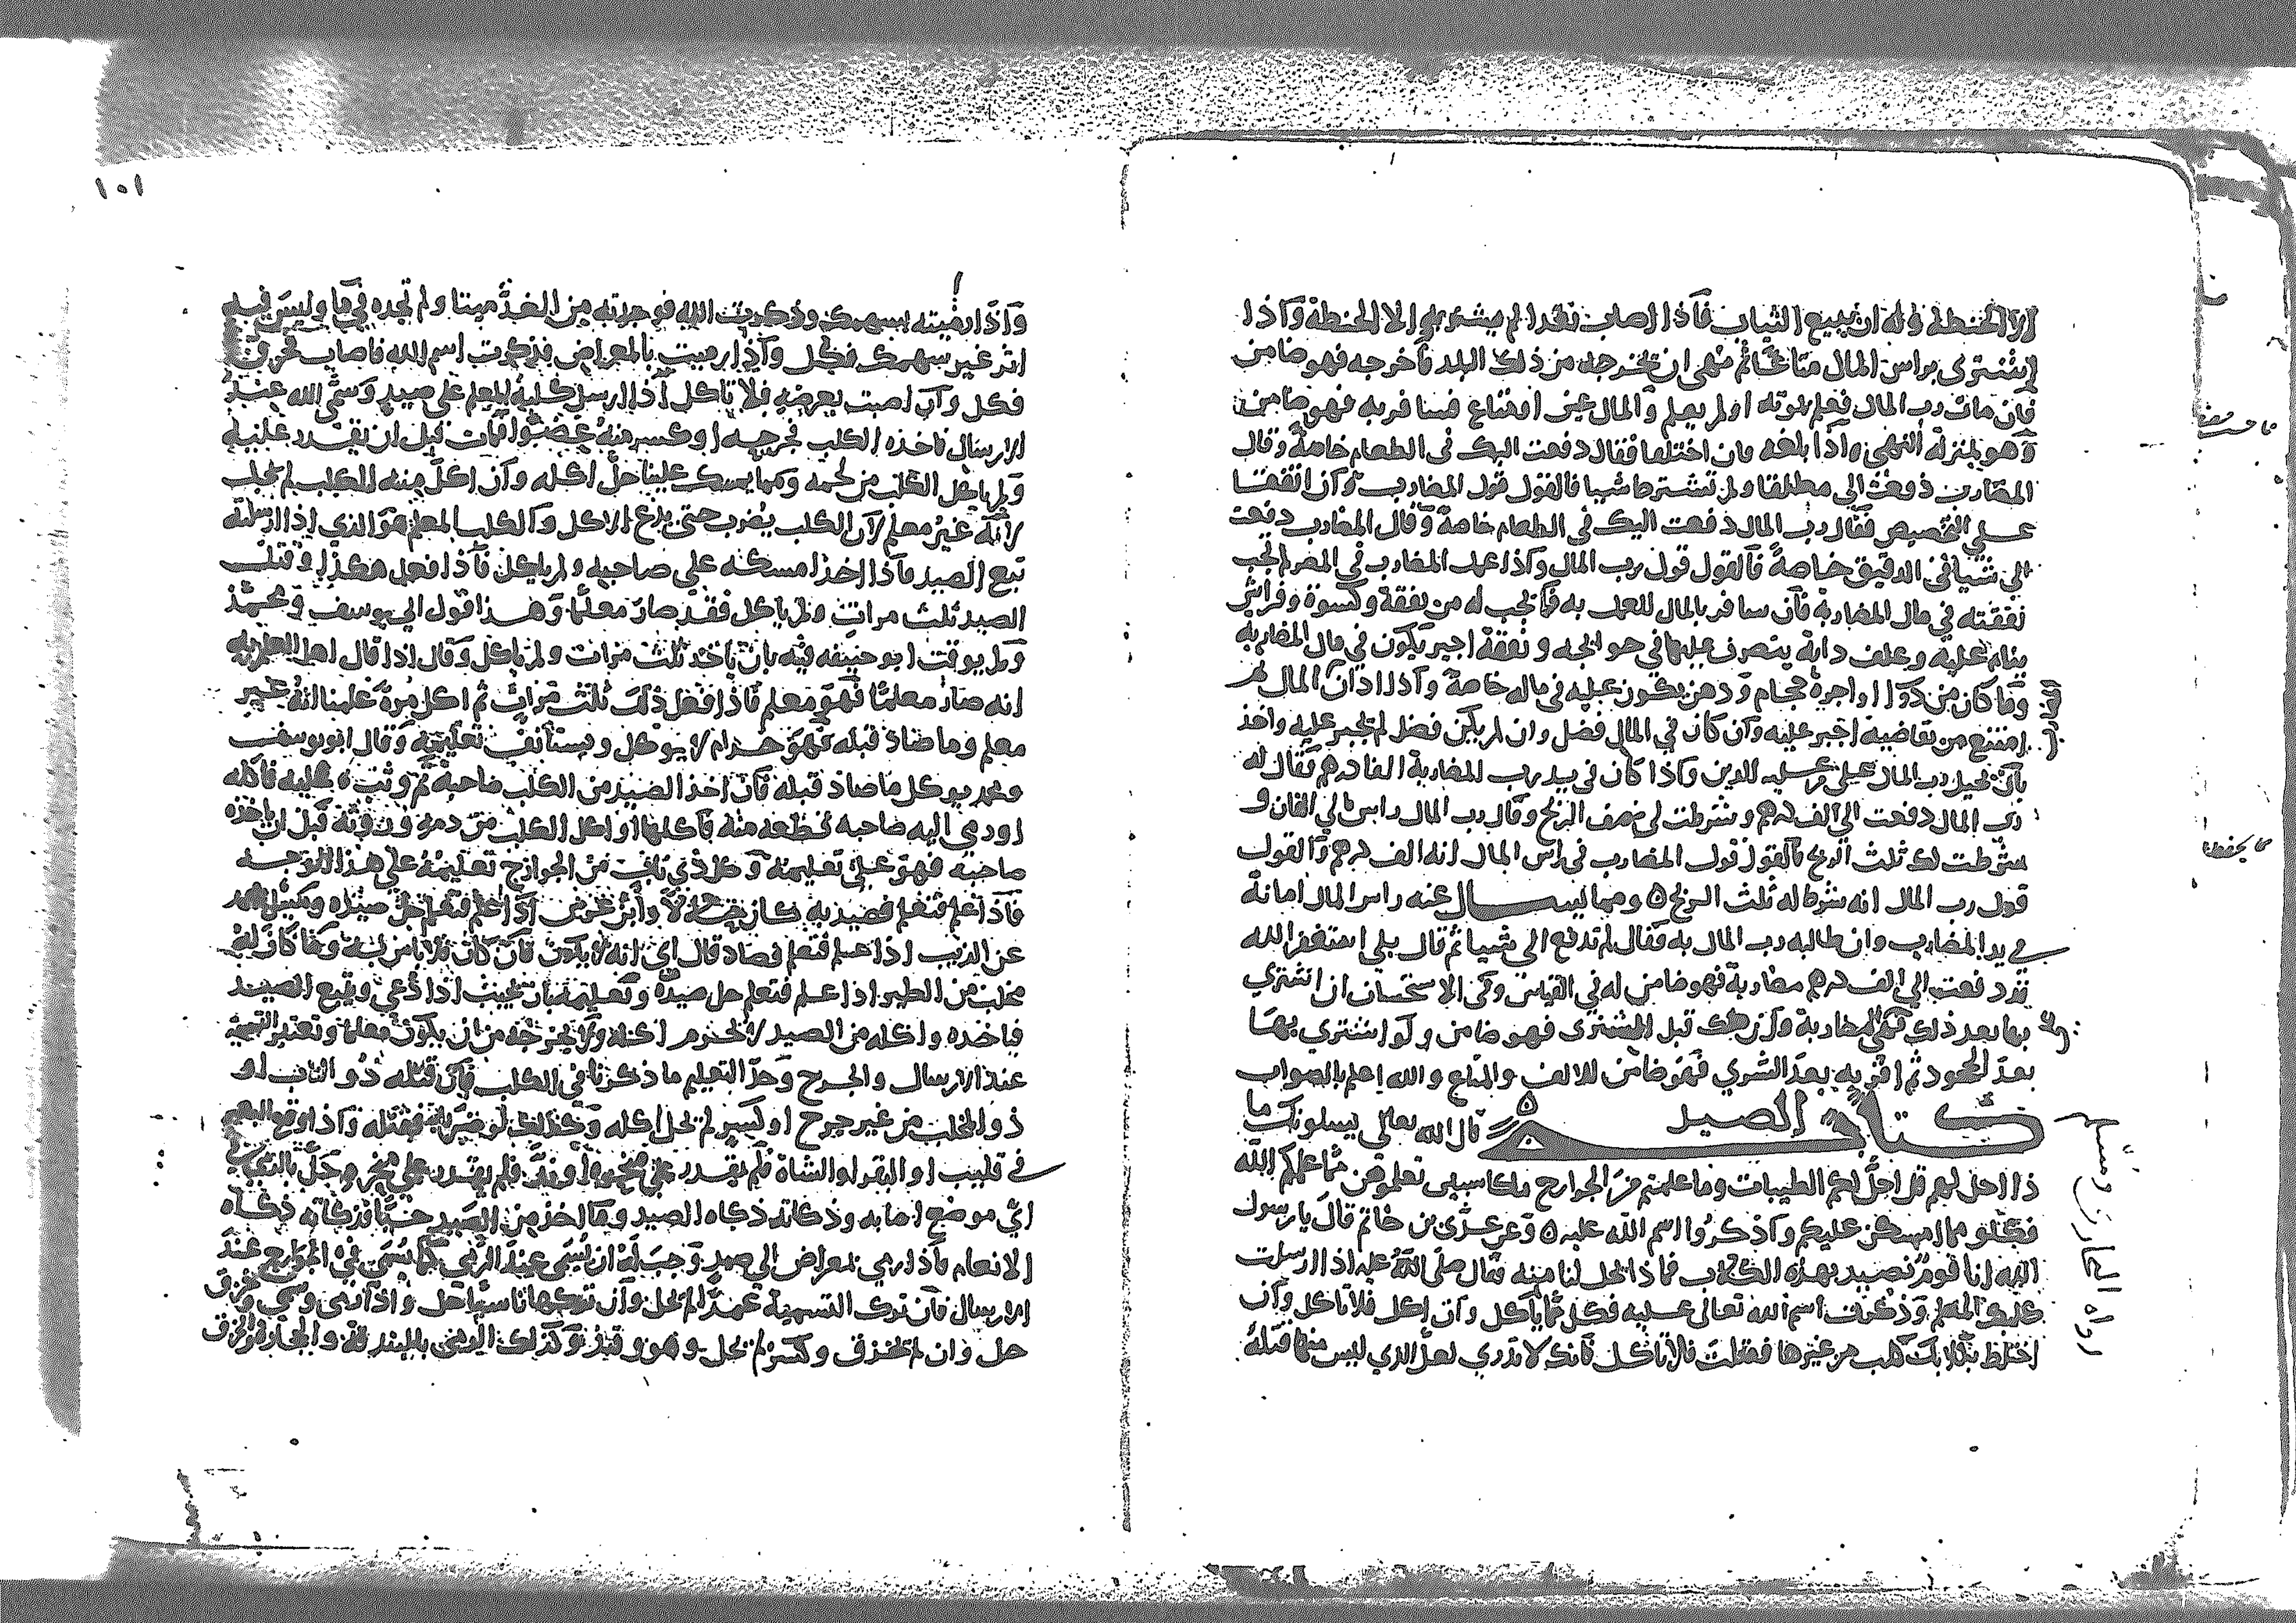 الا الحنطة وله ان يبيع الثياب فاذا اصاب نقدا لم يشتر به الا الحنطة واذا
اشترى براس المال متاعا ثم نهى ان يخرجه من ذلك البلد فاخرجه فهو ضامن
فان مات رب المال فعلم بموته او لم يعلم والمال عين او متاع فسافر به فهو ضامن
وهو بمنزلة النهي واذا بلغه فان اختلفا فقال دفعت اليك في الطعام خاصة وقال
المضارب دفعت الي مطلقا ولم تشترط شيا فالقول قول المضارب وان اتفقا
على التخصيص فقال رب المال دفعت اليك في الطعام خاصة وقال المضارب دفعت
الي شيا في الدقيق خاصة فالقول قول رب المال واذا عمل المضارب في المصر لم تجب
نفقته في مال المضاربة فان سافر بالمال للعمل به فما يجب له من نفقة وكسوة وفراش
ينام عليه وعلف دابة يتصرف عليها في حوائجه ونفقة اجير يكون في مال المضاربة
وما كان من دوا او اجرة حجام ودهن يكون عليه في ماله خاصة واذا ادان المال ثم
امتنع من تقاضيه اجبر عليه وان كان في المال فضل وان لم يكن فضل لم يجبر عليه واخذ
بان يحيل رب المال على من عليه الدين واذا كان في يد رب المضاربة الفا درهم فقال له
رب المال دفعت الي الف درهم وشرطت لي نصف الربح وقال رب المال راس مالي الفان و
شرطت لك ثلث الربح فالقول قول المضارب في راس المال انه الف درهم والقول
قول رب المال انه شرط له ثلث الربح ٥ ومما يسال عنه راس المال امانة
في يد المضارب وان طالبه رب المال به فقال لم تدفع الي شيا ثم قال بلى استغفر الله
قد دفعت الي الف درهم مضاربة فهو ضامن له في القياس وفي الاستحسان ان اشترى
بها بعد ذلك فهي المضاربة وان هلك قبل المشترى فهو ضامن ولو اشترى بها
بعد الجحود ثم اقر به بعد الشرى فهو ضامن للالف والمتاع والله اعلم بالصواب
كتاب الصيد ٥ قال الله تعالى يسلونك ما
ذا احل لهم قل احل لكم الطيبات وما علمتم من الجوارح مكلبين تعلمونهن مما علمكم الله
فكلوا مما امسكن عليكم واذكروا اسم الله عليه ٥ وعن عدي بن حاتم قال يا رسول
الله انا قوم نصيد بهذه الكلاب فماذا يحل لنا منه فقال صلى الله عليه اذا ارسلت
كلبك المعلم وذكرت اسم الله تعالى عليه فكل مما ياكل وان اكل فلا تاكل وان
اختلط بكلابك كلب من غيرها فقتلت فلا تاكل فانك لا تدري لعل الذي ليس منها قتله
رواه البخاري ومسلم
١٥١
واذا رميته بسهمك وذكرت الله فوجدته من الغد ميتا ولم تجده في ما وليس فيه
اثر غير سهمك فكل واذا رميت بالمعراض فذكرت اسم الله فاصاب فخرق
فكل وان اصبت بعرضه فلا تاكل اذا ارسل كلبه المعلم على صيد وسمى الله عند
الارسال فاخذه الكلب فجرحه او كسر منه عضوا فمات قبل ان يقدر عليه
ولم ياكل الكلب من لحمه ومما يمسك علينا حل اكله وان اكل منه الكلب لم يحل
لانه غير معلم لان الكلب يضرب حتى يدع الاكل والكلب المعلم هو الذي اذا ارسلته
تبع الصيد فاذا اخذ امسكه على صاحبه ولم ياكل فاذا فعل هكذا وقتل
الصيد ثلث مرات ولم ياكل فقد صار معلما وهذا قول ابي يوسف ومحمد
ولم يوقت ابو حنيفة فيه بان ياخذ ثلث مرات ولم ياكل وقال اذا قال اهل العلم به
انه صار معلما فهو معلم فاذا فعل ذلك ثلث مرات ثم اكل مرة علمنا انه غير
معلم وما صاد قبله فهو حرام لا يوكل ويستانف تعليمه وقال ابو يوسف
ومحمد يوكل ما صاد قبله فان اخذ الصيد من الكلب صاحبه ثم وثب عليه فاكله
او رمى اليه صاحبه قطعة منه فاكلها او اكل الكلب من دمه وفرثه قبل ان ياخذه
صاحبه فهو على تعليمه وكل ذي ناب من الجوارح تعليمه على هذا الوجه
فاذا علم فتعلم فصيد به كان حلالا وابن عرس اذا علم فتعلم حل صيده وسئل محمد
عن الذيب اذا علم فتعلم فصاد قال ارى انه لا يكون فان كان فلا باس به وما كان له
مخلب من الطير اذا علم فتعلم حل صيده وتعليمه بان يجيب اذا دعي ويتبع الصيد
فاخذه واكله من الصيد لا يحرم اكله ولا يخرجه من ان يكون معلما وتعتبر التسمية
عند الارسال والجرح وحد التعليم ما ذكرنا في الكلب فان قتله ذو الناب او
ذو المخلب من غير جرح او كسر لم يحل اكله وكذلك لو ضربه فقتله واذا وقع البعير
في قليب او البقر او الشاة فلم يقدر على منحره او ند فلم يقدر على منحره حل بالرمي
اي موضع اصابه وذكاته ذكاة الصيد وما اخذ من الصيد حيا فذكاته ذكاة
الانعام فاذا رمى بمعراض الى صيد وجب له ان يسمي عند الرمي كما يسمي في الجوارح عند
الارسال فان ترك التسمية عمدا لم يحل وان تركها ناسيا حل واذا رمى وسمى وخزق
حل وان لم يخزق وكسر لم يحل وهو وقيذ وكذلك الرمي بالبندقة والحجارة